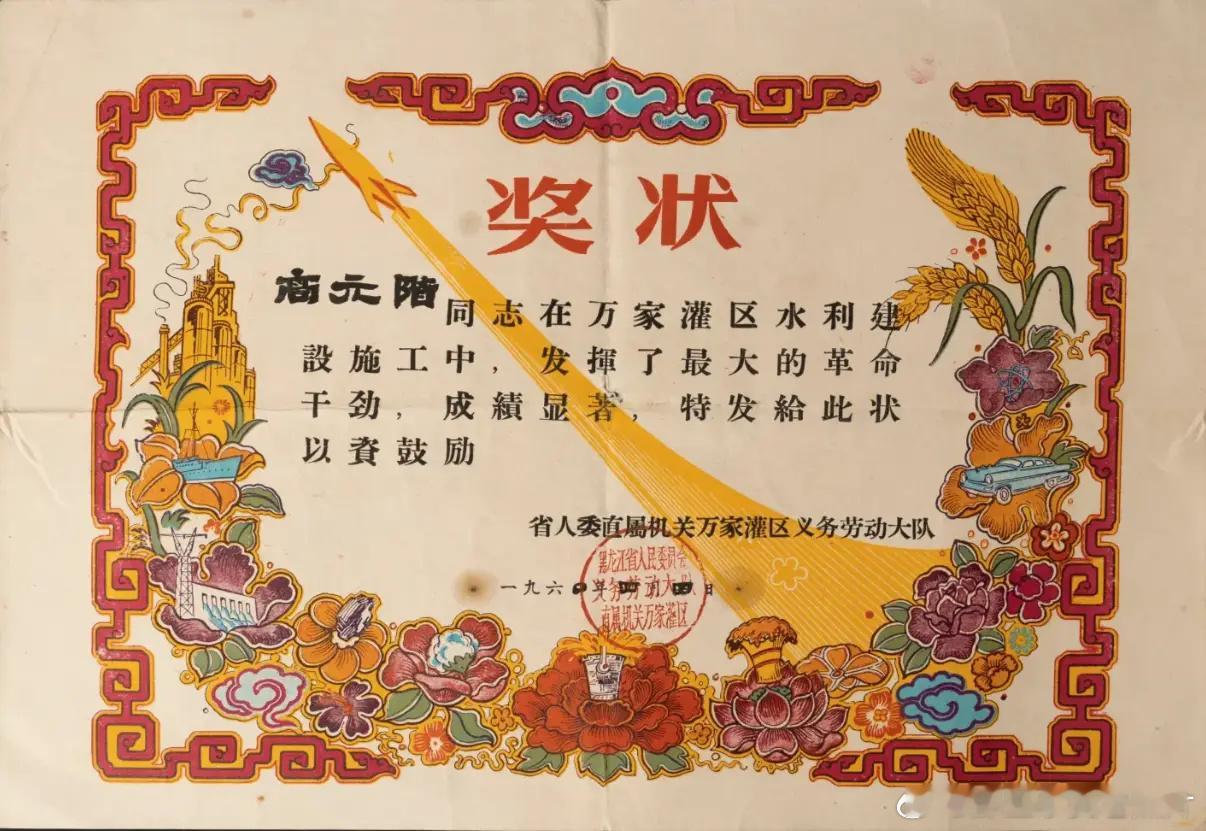 奖状
商元階同志在万家灌区水利建
設施工中，发揮了最大的革命
干劲，成績显著，特发給此状
以資鼓励
省人委直屬机关万家灌区义务劳动大队
一九六〇年四月四日
黑龙江省人民委员会
义务劳动大队
直屬机关万家灌区